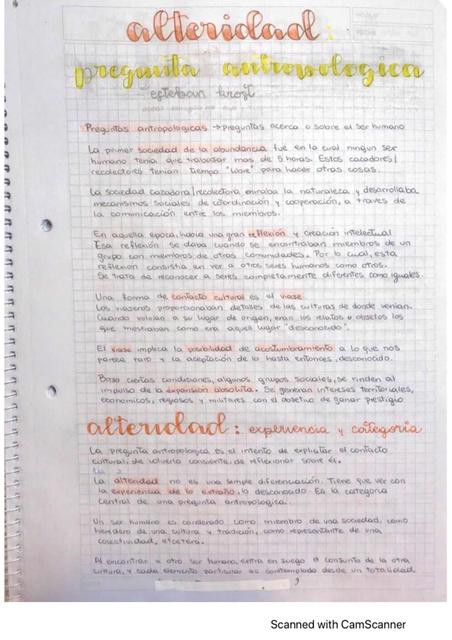 alteridad:
pregunta antropologica
esteban krotz
Preguntas antropologicas → preguntas acerca o sobre el ser humano
La primer sociedad de la abundancia fue en la cual ningun ser
humano tenia que trabajar mas de 5 horas. Estos cazadores/
recolectores tenian tiempo "libre" para hacer otras cosas.
La sociedad cazadora/recolectora miraba la naturaleza y desarrollaba
mecanismos sociales de coordinación y cooperación, a traves de
la comunicación entre los miembros.
En aquella epoca, habia una gran reflexion y creación intelectual
Esa reflexión se daba cuando se encontraban miembros de un
grupo con miembros de otras comunidades. Por lo cual, esta
reflexion consistia en ver a otros seres humanos como otros.
Se trata de reconocer a seres completamente diferentes como iguales.
Una forma de contacto cultural es el viaje
Los viajeros proporcionaban detalles de las culturas de donde venian.
Cuando volvian a su lugar de origen, eran los relatos u objetos los
que mostraban como era aquel lugar "desconocido".
El viaje implica la posibilidad de acostumbramiento a lo que nos
parece raro y la aceptación de lo hasta entonces, desconocido.
Bajo ciertas condiciones, algunos grupos sociales, se rinden al
impulso de la expansion absoluta. Se generan intereses territoriales,
economicos, religiosos y militares con el objetivo de ganar prestigio
alteridad: experiencia y categoria
La pregunta antropologica es el intento de explicitar el contacto
cultural, de volverlo consciente, de reflexionar sobre él.
La alteridad no es una simple diferenciación. Tiene que ver con
la experiencia de lo extraño, lo desconocido. Es la categoria
central de una pregunta antropologica.
Un ser humano es considerado como miembro de una sociedad, como
heredero de una cultura y tradición, como representante de una
colectividad, etcetera.
Al encontrar a otro ser humano, entra en juego el conjunto de la otra
cultura, y cada elemento particular es contemplado desde un totalidad
Scanned with CamScanner